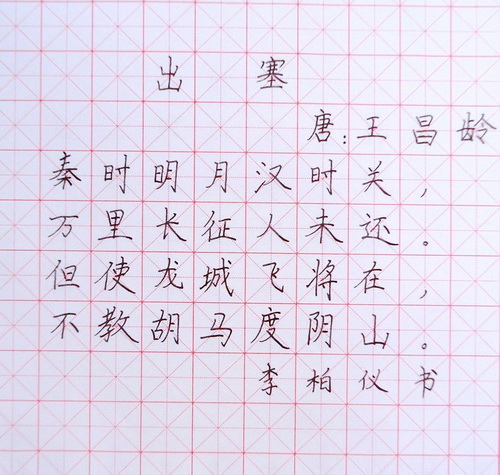 出塞
唐:王昌龄
秦时明月汉时关,
万里长征人未还。
但使龙城飞将在,
不教胡马度阴山。
李柏仪书